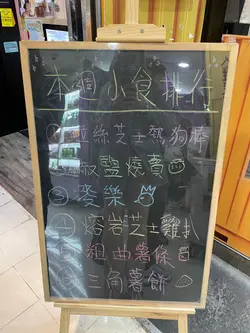 本週小食排行
①拉絲芝士熱狗棒
②椒鹽燒賣
③麥樂
④熔岩芝士雞扒
⑤粗曲薯條
⑥三角薯餅